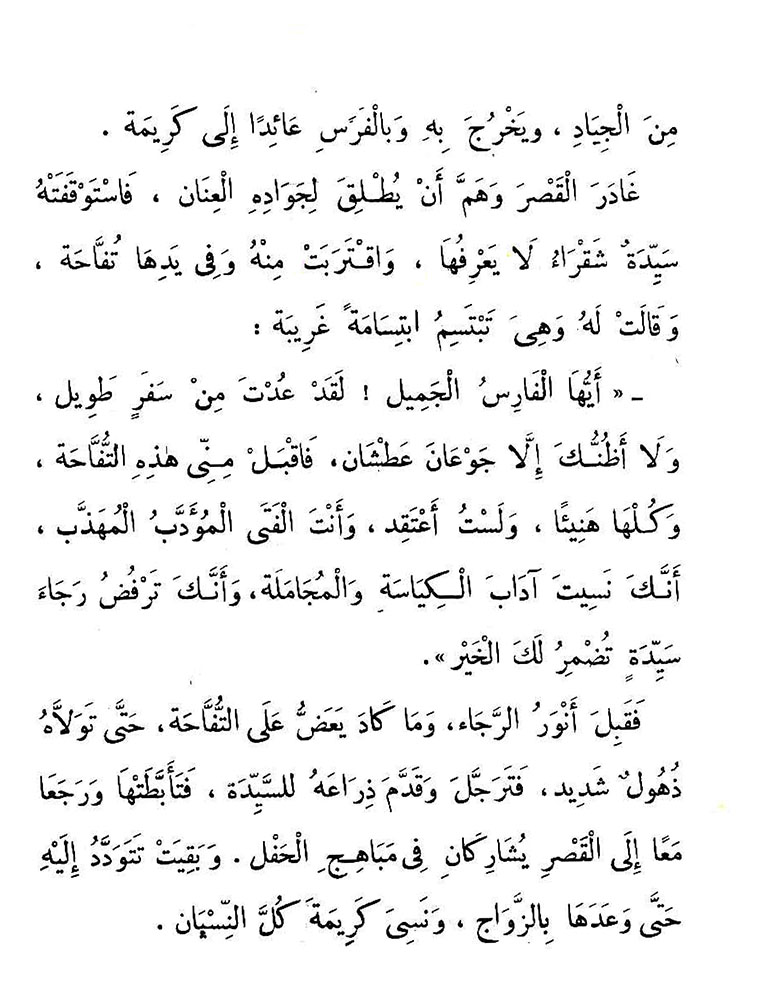 مِنَ الْجِيَادِ ، ويَخْرُجَ بِهِ وَبالْفَرَسِ عَائِدًا إلَى كَرِيمَة .
غَادَرَ الْقَصْرَ وَهَمَّ أَنْ يُطْلِقَ لِجَوَادِهِ الْعِنَان ، فَاسْتَوْقَفَتْهُ
سَيِّدَةٌ شَقْرَاءُ لَا يَعْرِفُهَا ، وَاقْتَرَبَتْ مِنْهُ وَفِى يَدِهَا تُفَّاحَة ،
وَقَالَتْ لَهُ وَهِىَ تَبْتَسِمُ ابتِسَامَةً غَرِيبَة :
ـ « أَيُّهَا الْفَارِسُ الْجَمِيل ! لَقَدْ عُدْتَ مِنْ سَفَرٍ طَوِيل ،
وَلَا أَظُنُّكَ إِلَّا جَوْعَانَ عَطْشَان، فَاقْبَلْ مِنِّى هٰذِهِ التُّفَّاحَة ،
وَكُلْهَا هَنِيئًا ، وَلَسْتُ أَعْتَقِد ، وَأَنْتَ الْفَتَى الْمُؤَدَّبُ الْمُهَذَّب ،
أَنَّكَ نَسِيتَ آدَابَ الْكِيَاسَةِ وَالْمُجَامَلَة، وَأَنَّكَ تَرْفُضُ رَجَاءَ
سَيِّدَةٍ تُضْمِرُ لَكَ الْخَيْر ».
فَقَبِلَ أَنْوَرُ الرَّجَاء، وَمَا كَادَ يَعَضُّ عَلَى التُّفَّاحَة، حَتَّى تَوَلَّاهُ
ذُهُولٌ شَدِيد، فَتَرَجَّلَ وَقَدَّمَ ذِرَاعَهُ للسَّيِّدَة ، فَتَأَبَّطَتْهَا وَرَجَعَا
مَعًا إِلَى الْقَصْرِ يُشَارِكَانِ فِى مَبَاهِجِ الْحَفْل . وَبَقِيَتْ تَتَوَدَّدُ إِلَيْهِ
حَتَّى وَعَدَهَا بِالزَّوَاج ، وَنَسِىَ كَرِيمَةَ كُلَّ النِّسْيَان .